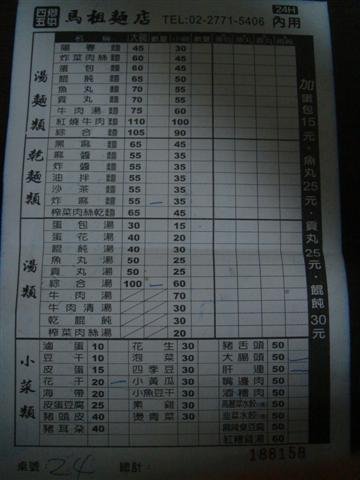 馬祖麵店 TEL:02-2771-5406 24H 內用
湯麵類
陽春麵 45 30
炸菜肉絲麵 60 45
蛋包麵 60 40
餛飩麵 65 50
魚丸麵 70 55
貢丸麵 70 55
牛肉湯麵 75 60
紅燒牛肉麵 110 100
綜合麵 105 90
乾麵類
黑麻麵 65 45
麻醬麵 55 35
炸醬麵 55 35
油拌麵 55 35
沙茶麵 55 35
炸麻麵 55 35
榨菜肉絲乾麵 65 45
湯類
蛋包湯 30 15
蛋花湯 40 20
餛飩湯 40 30
魚丸湯 50 25
貢丸湯 50 25
綜合湯 100 60
牛肉湯 70
牛肉清湯 30
乾餛飩 30
榨菜肉絲湯 20
小菜類
滷蛋 10 花生 30 豬舌頭 50
豆干 10 泡菜 30 大腸頭 50
皮蛋 15 四季豆 30 肝連 50
花干 20 小黃瓜 30 嘴邊肉 50
海帶 20 小魚豆干 30 酒糟肉 50
皮蛋豆腐 25 素雞 30 高麗菜水餃 50
豬頭皮 40 燙青菜 30 韭菜水餃 50
豬耳朵 40 麻辣臭豆腐 50
紅糟雞湯 60
加蛋包15元·魚丸25元·貢丸25元·餛飩30元
188158
桌號: 24 總計: